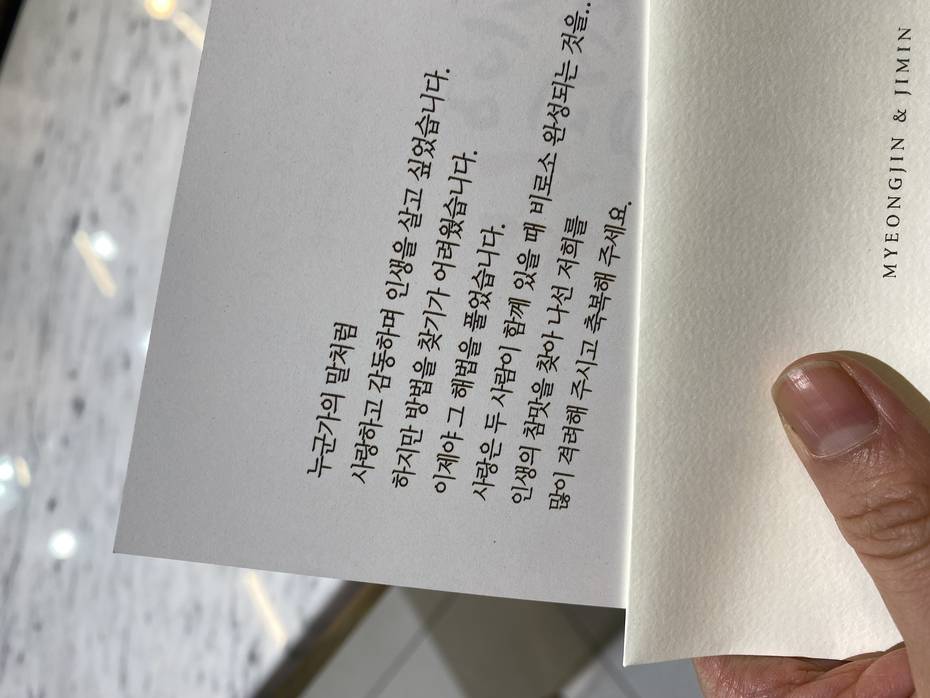 누군가의 말처럼
사랑하고 감동하며 인생을 살고 싶었습니다.
하지만 방법을 찾기가 어려웠습니다.
이제야 그 해법을 풀었습니다.
사랑은 두 사람이 함께 있을 때 비로소 완성되는 것을..
인생의 참맛을 찾아 나선 저희를
많이 격려해 주시고 축복해 주세요.
MYEONGJIN & JIMIN